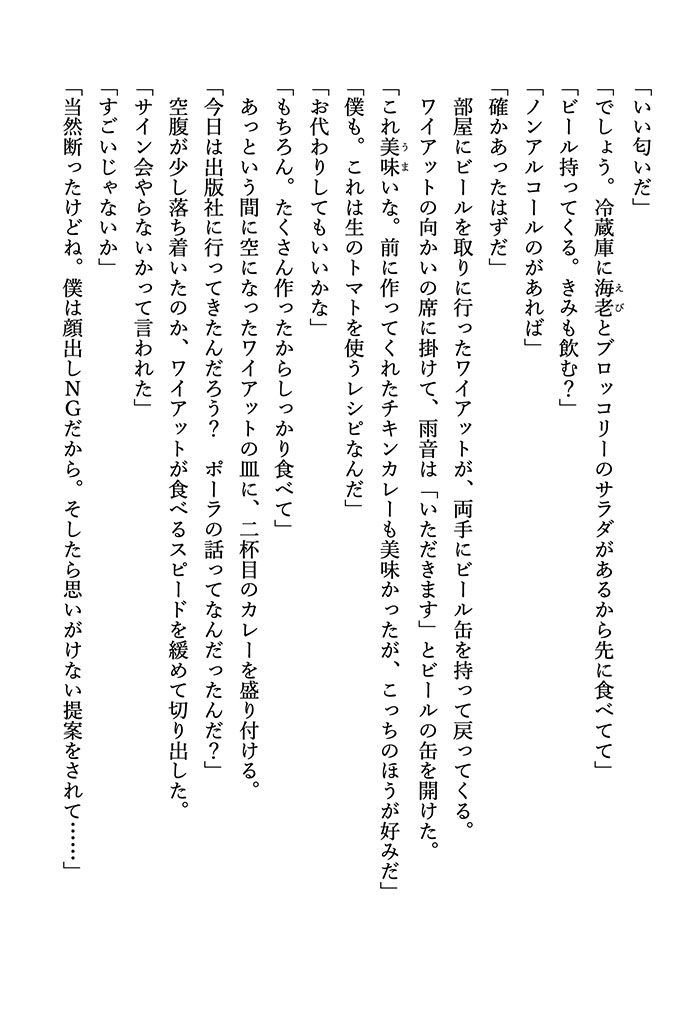 「いい匂いだ」
「でしょう。冷蔵庫に海老とブロッコリーのサラダがあるから先に食べてて」
「ビール持ってくる。きみも飲む？」
「ノンアルコールのがあれば」
「確かあったはずだ」
部屋にビールを取りに行ったワイアットが、両手にビール缶を持って戻ってくる。
ワイアットの向かいの席に掛けて、雨音は「いただきます」とビールの缶を開けた。
「これ美味いな。前に作ってくれたチキンカレーも美味かったが、こっちのほうが好みだ」
「僕も。これは生のトマトを使うレシピなんだ」
「お代わりしてもいいかな」
「もちろん。たくさん作ったからしっかり食べて」
あっという間に空になったワイアットの皿に、二杯目のカレーを盛り付ける。
「今日は出版社に行ってきたんだろう？　ポーラの話ってなんだったんだ？」
空腹が少し落ち着いたのか、ワイアットが食べるスピードを緩めて切り出した。
「サイン会やらないかって言われた」
「すごいじゃないか」
「当然断ったけどね。僕は顔出しＮＧだから。そしたら思いがけない提案をされて……」